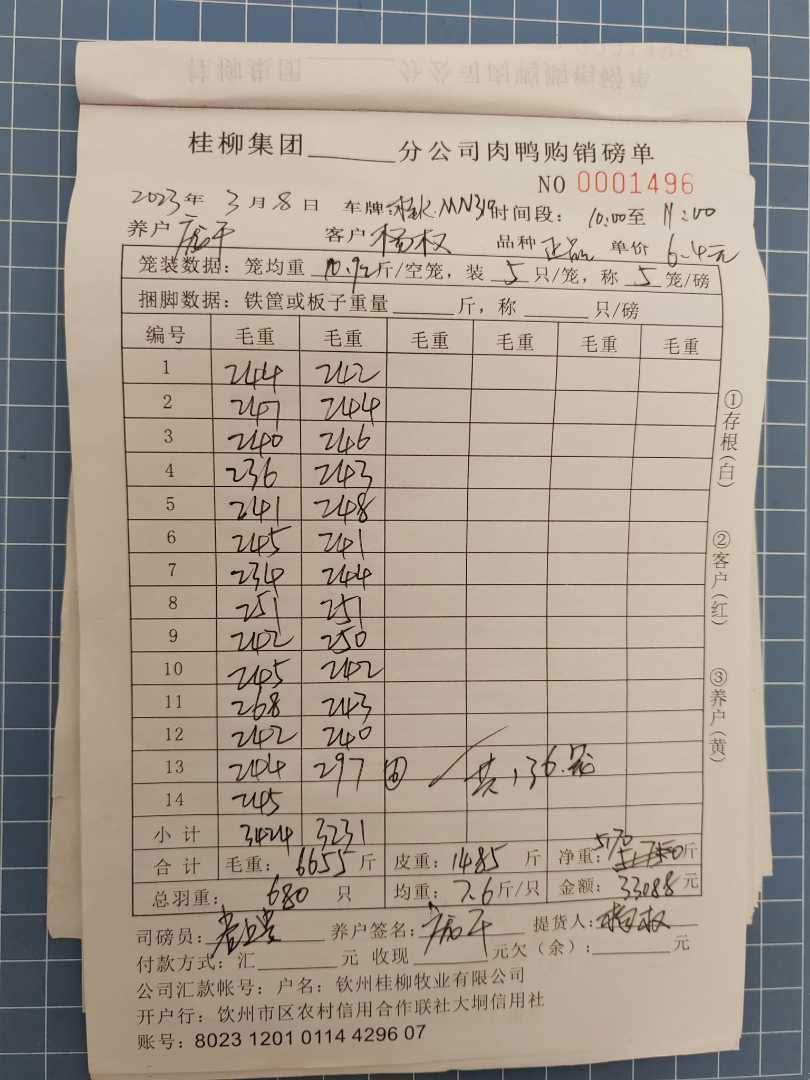 桂柳集团______分公司肉鸭购销磅单
NO 0001496
2023年 3月8日 车牌: MN319 时间段: 10:00至11:00
养户 客户 杨权 品种 正品 单价 6.4元
笼装数据: 笼均重 10.92斤/空笼, 装 5 只/笼, 称 5 笼/磅
捆脚数据: 铁筐或板子重量______斤, 称______只/磅
编号 毛重 毛重 毛重 毛重 毛重 毛重
1 244 242
2 247 244
3 240 246
4 236 243
5 241 248
6 245 241
7 234 244
8 251 251
9 242 250
10 245 242
11 268 243
12 242 240
13 244 297 ⑥ 共136笼
14 245
小计 3424 3231
合计 毛重: 6655斤 皮重: 1485斤 净重: 5170斤
总羽重: 680 只 均重: 7.6斤/只 金额: 33088元
司磅员: 养户签名: 提货人: 杨权
付款方式: 汇______元 收现______元欠(余):______元
公司汇款帐号: 户名: 钦州桂柳牧业有限公司
开户行: 饮州市区农村信用合作联社大垌信用社
账号: 8023 1201 0114 4296 07
①存根(白)
②客户(红)
③养户(黄)